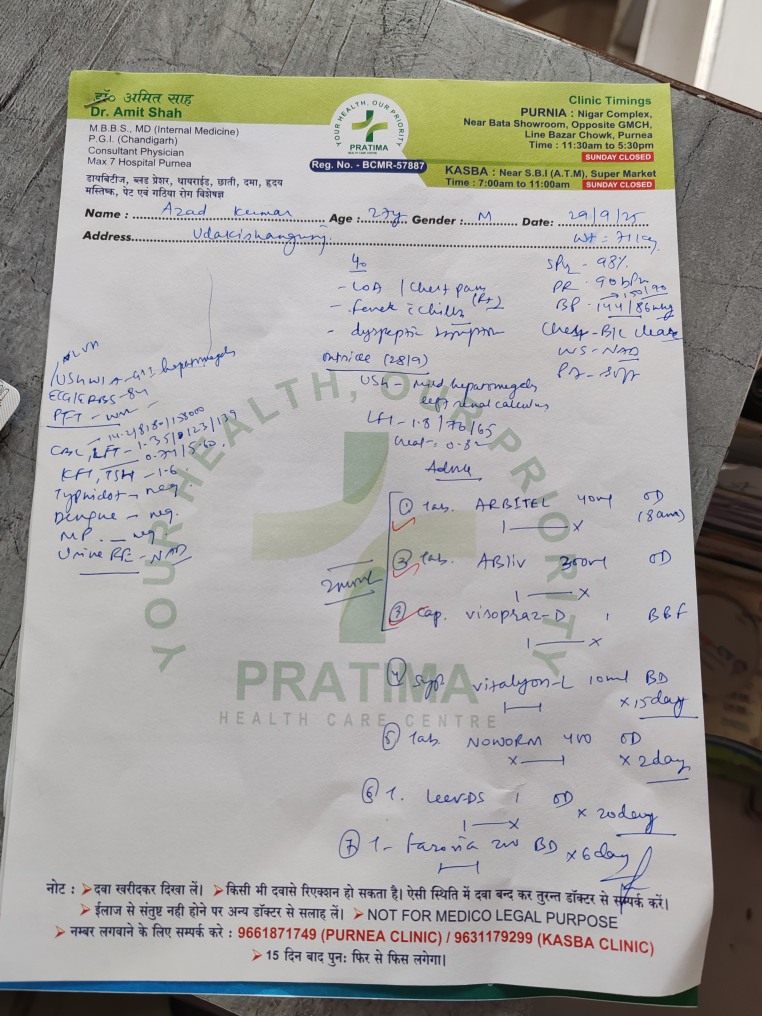 डॉ० अमित साह
Dr. Amit Shah
M.B.B.S., MD (Internal Medicine)
P.G.I. (Chandigarh)
Consultant Physician
Max 7 Hospital Purnea
डायबिटीज, ब्लड प्रेशर, थायराईड, छाती, दमा, हृदय
मस्तिष्क, पेट एवं गठिया रोग विशेषज्ञ
YOUR HEALTH, OUR PRIORITY
PRATIMA
HEALTH CARE CENTRE
Reg. No. - BCMR-57887
Clinic Timings
PURNIA : Nigar Complex,
Near Bata Showroom, Opposite GMCH,
Line Bazar Chowk, Purnea
Time : 11:30am to 5:30pm
SUNDAY CLOSED
KASBA : Near S.B.I (A.T.M), Super Market
Time : 7:00am to 11:00am SUNDAY CLOSED
Name : Azad Kumar Age : 27y Gender : M Date: 29/9/25
Address Udakishanganj Wt = 71kg
- LOA / Chest pain
- fever c chills
- dyspeptic symptom
SPO2 - 98%
PR - 90 bpm
150/90
BP - 144/86 mmHg
Chest - B/L clear
P/A - soft
outside (28/9)
USG - mild hepatomegaly
left renal calculus
LFT - 1.8/76/65
Creat - 0.82
USG W/A - GI hepatomegaly
ECG/GRBS - 84
PFT - WNL
- 14.2/8180/158000
CBC, LFT - 1.35/ /123/139
0.77/5.60
KFT, TSH - 1.6
Typhidot - neg
Dengue - neg.
MP. - neg
Urine RE - NAD
Advice
① Tab. ARBITEL 40mg OD
(8am)
1 — x
② Tab. ABliv 300mg OD
1 — x
③ Cap. Visopraz-D 1 BBF
1 — x
④ Syp. Vitalyon-L 10ml BD
x 15 day
⑤ Tab. NOWORM 400 OD
x — x 2 day
⑥ T. Leev-DS 1 OD
1 — x x 20 day
⑦ T- Faronia 200 BD x 6 day
YOUR HEALTH, OUR PRIORITY
PRATIMA
HEALTH CARE CENTRE
नोट : ➤ दवा खरीदकर दिखा लें। ➤ किसी भी दवासे रिएक्शन हो सकता है। ऐसी स्थिति में दवा बन्द कर तुरन्त डॉक्टर से सम्पर्क करें।
➤ ईलाज से संतुष्ट नही होने पर अन्य डॉक्टर से सलाह लें। ➤ NOT FOR MEDICO LEGAL PURPOSE
➤ नम्बर लगवाने के लिए सम्पर्क करे : 9661871749 (PURNEA CLINIC) / 9631179299 (KASBA CLINIC)
➤ 15 दिन बाद पुनः फिर से फिस लगेगा।